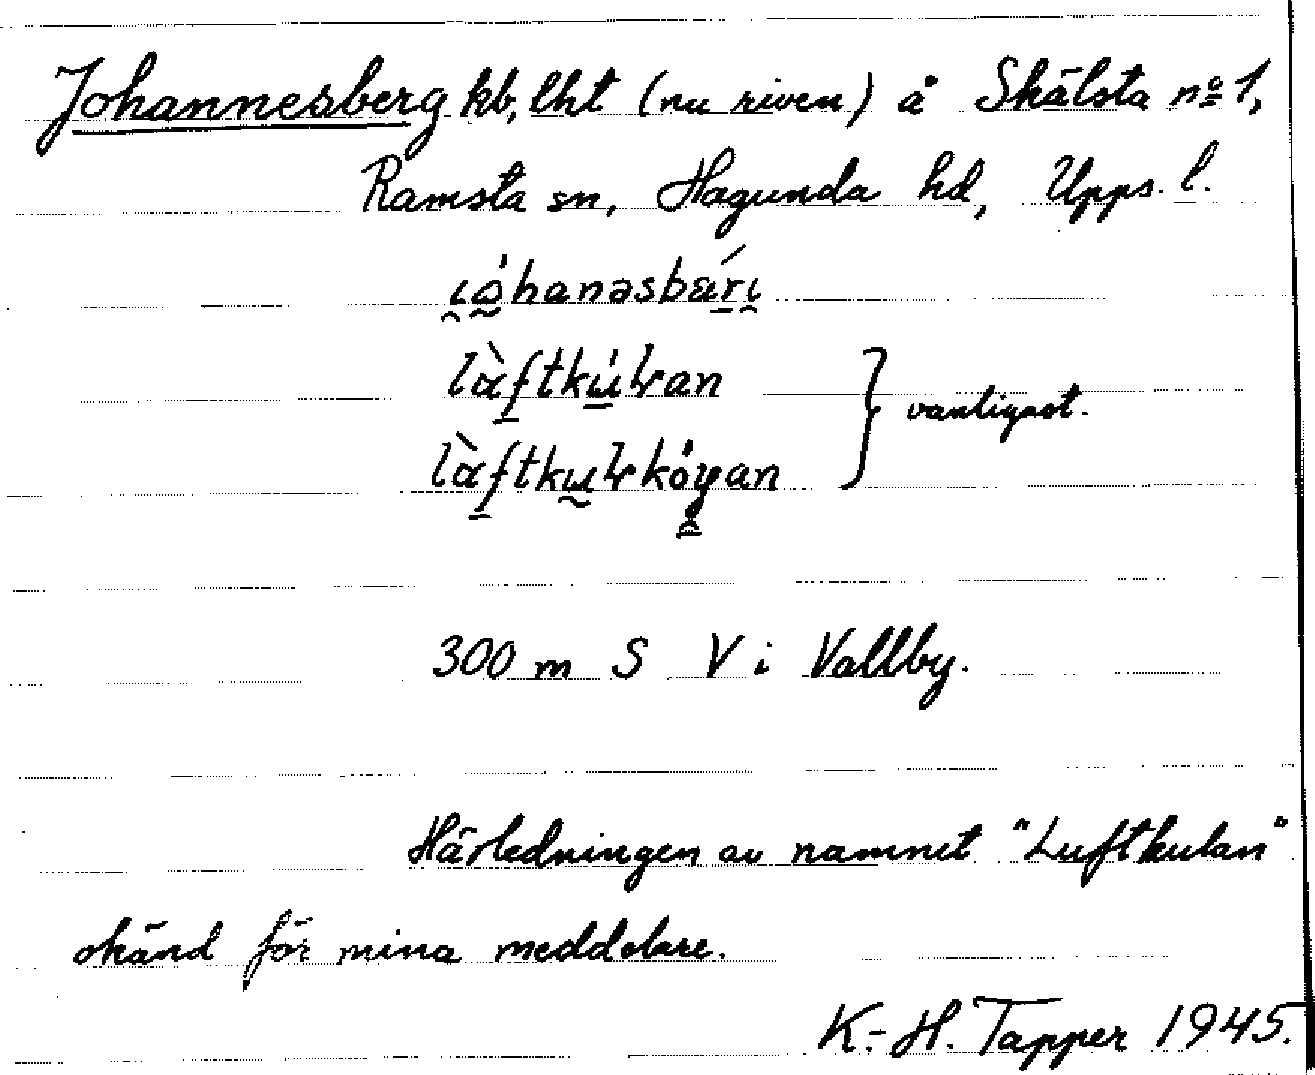 Johannesberg kb, lht (nu riven) å Skälsta nº 1,
Ramsta sn, Hagunda hd, Upps. l.
vanligast.
300 m S V i Vallby.
Härledningen av namnet "Luftkulan"
okänd för mina meddelare.
K.-H. Tapper 1945.